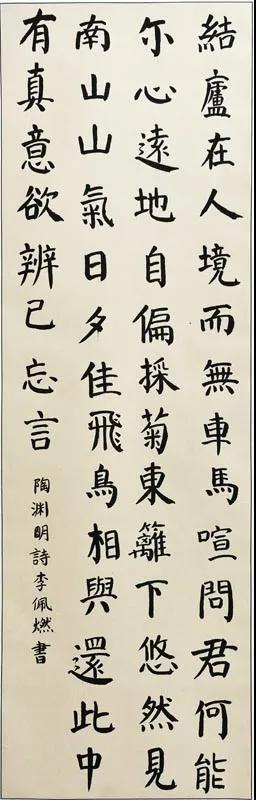 結廬在人境而無車馬喧問君何能
尔心遠地自偏採菊東籬下悠然見
南山山氣日夕佳飛鳥相與還此中
有真意欲辨已忘言
陶渊明詩李佩燃書